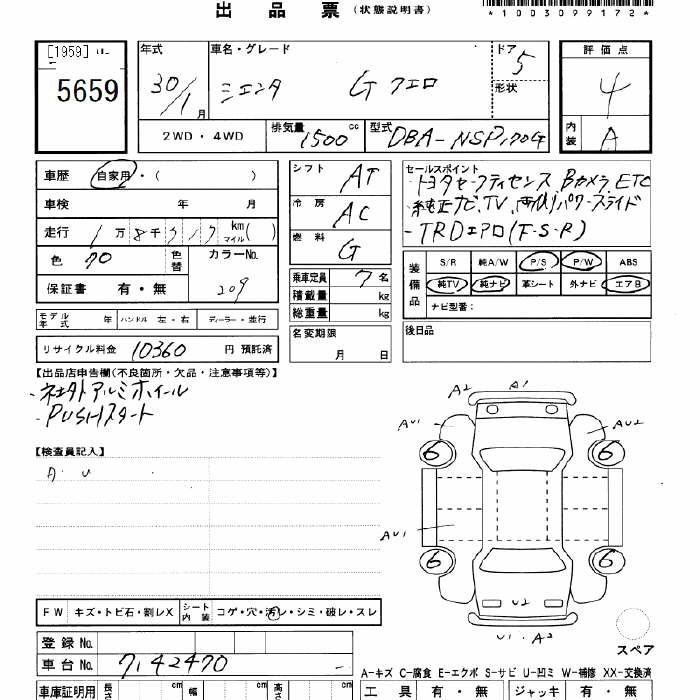 出品票 (状態説明書)
*1003099172*
[1959]
5659
年式
30/1 月
車名・グレード
シエンタ G クエロ
ドア 5
形状
評価点
4
2WD・4WD
排気量 1500 cc
型式 DBA-NSP170G
内装 A
車歴 自家用・( )
車検 年 月
走行 1万8千717 km(マイル)
色 クロ 色替 カラーNo. 209
保証書 有・無
シフト AT
冷房 AC
燃料 G
乗車定員 7名
積載量 kg
総重量 kg
名変期限 月 日
セールスポイント
・トヨタセーフティセンス、Bカメラ、ETC
・純正ナビ、TV、両側パワースライド
・TRDエアロ(F-S-R)
装備品
S/R 純A/W P/S P/W ABS
純TV 純ナビ 革シート 外ナビ エアB
ナビ型番:
モデル年式 年 ハンドル 左・右 ディーラー・並行
後日品
リサイクル料金 10360 円 預託済
【出品店申告欄(不良箇所・欠品・注意事項等)】
・社外アルミホイール
・PUSHスタート
【検査員記入】
A・U
A2 A1
AU1 AU2
6 6
AU1
6 6
U2
U1・A2
スペア
FW キズ・トビ石・割レX シート内装 コゲ・穴・汚レ・シミ・破レ・スレ
登録No.
車台No. 7142470
A-キズ C-腐食 E-エクボ S-サビ U-凹ミ W-補修 XX-交換済
車庫証明用 長さ cm 幅 cm 高さ cm
工具 有・無 ジャッキ 有・無